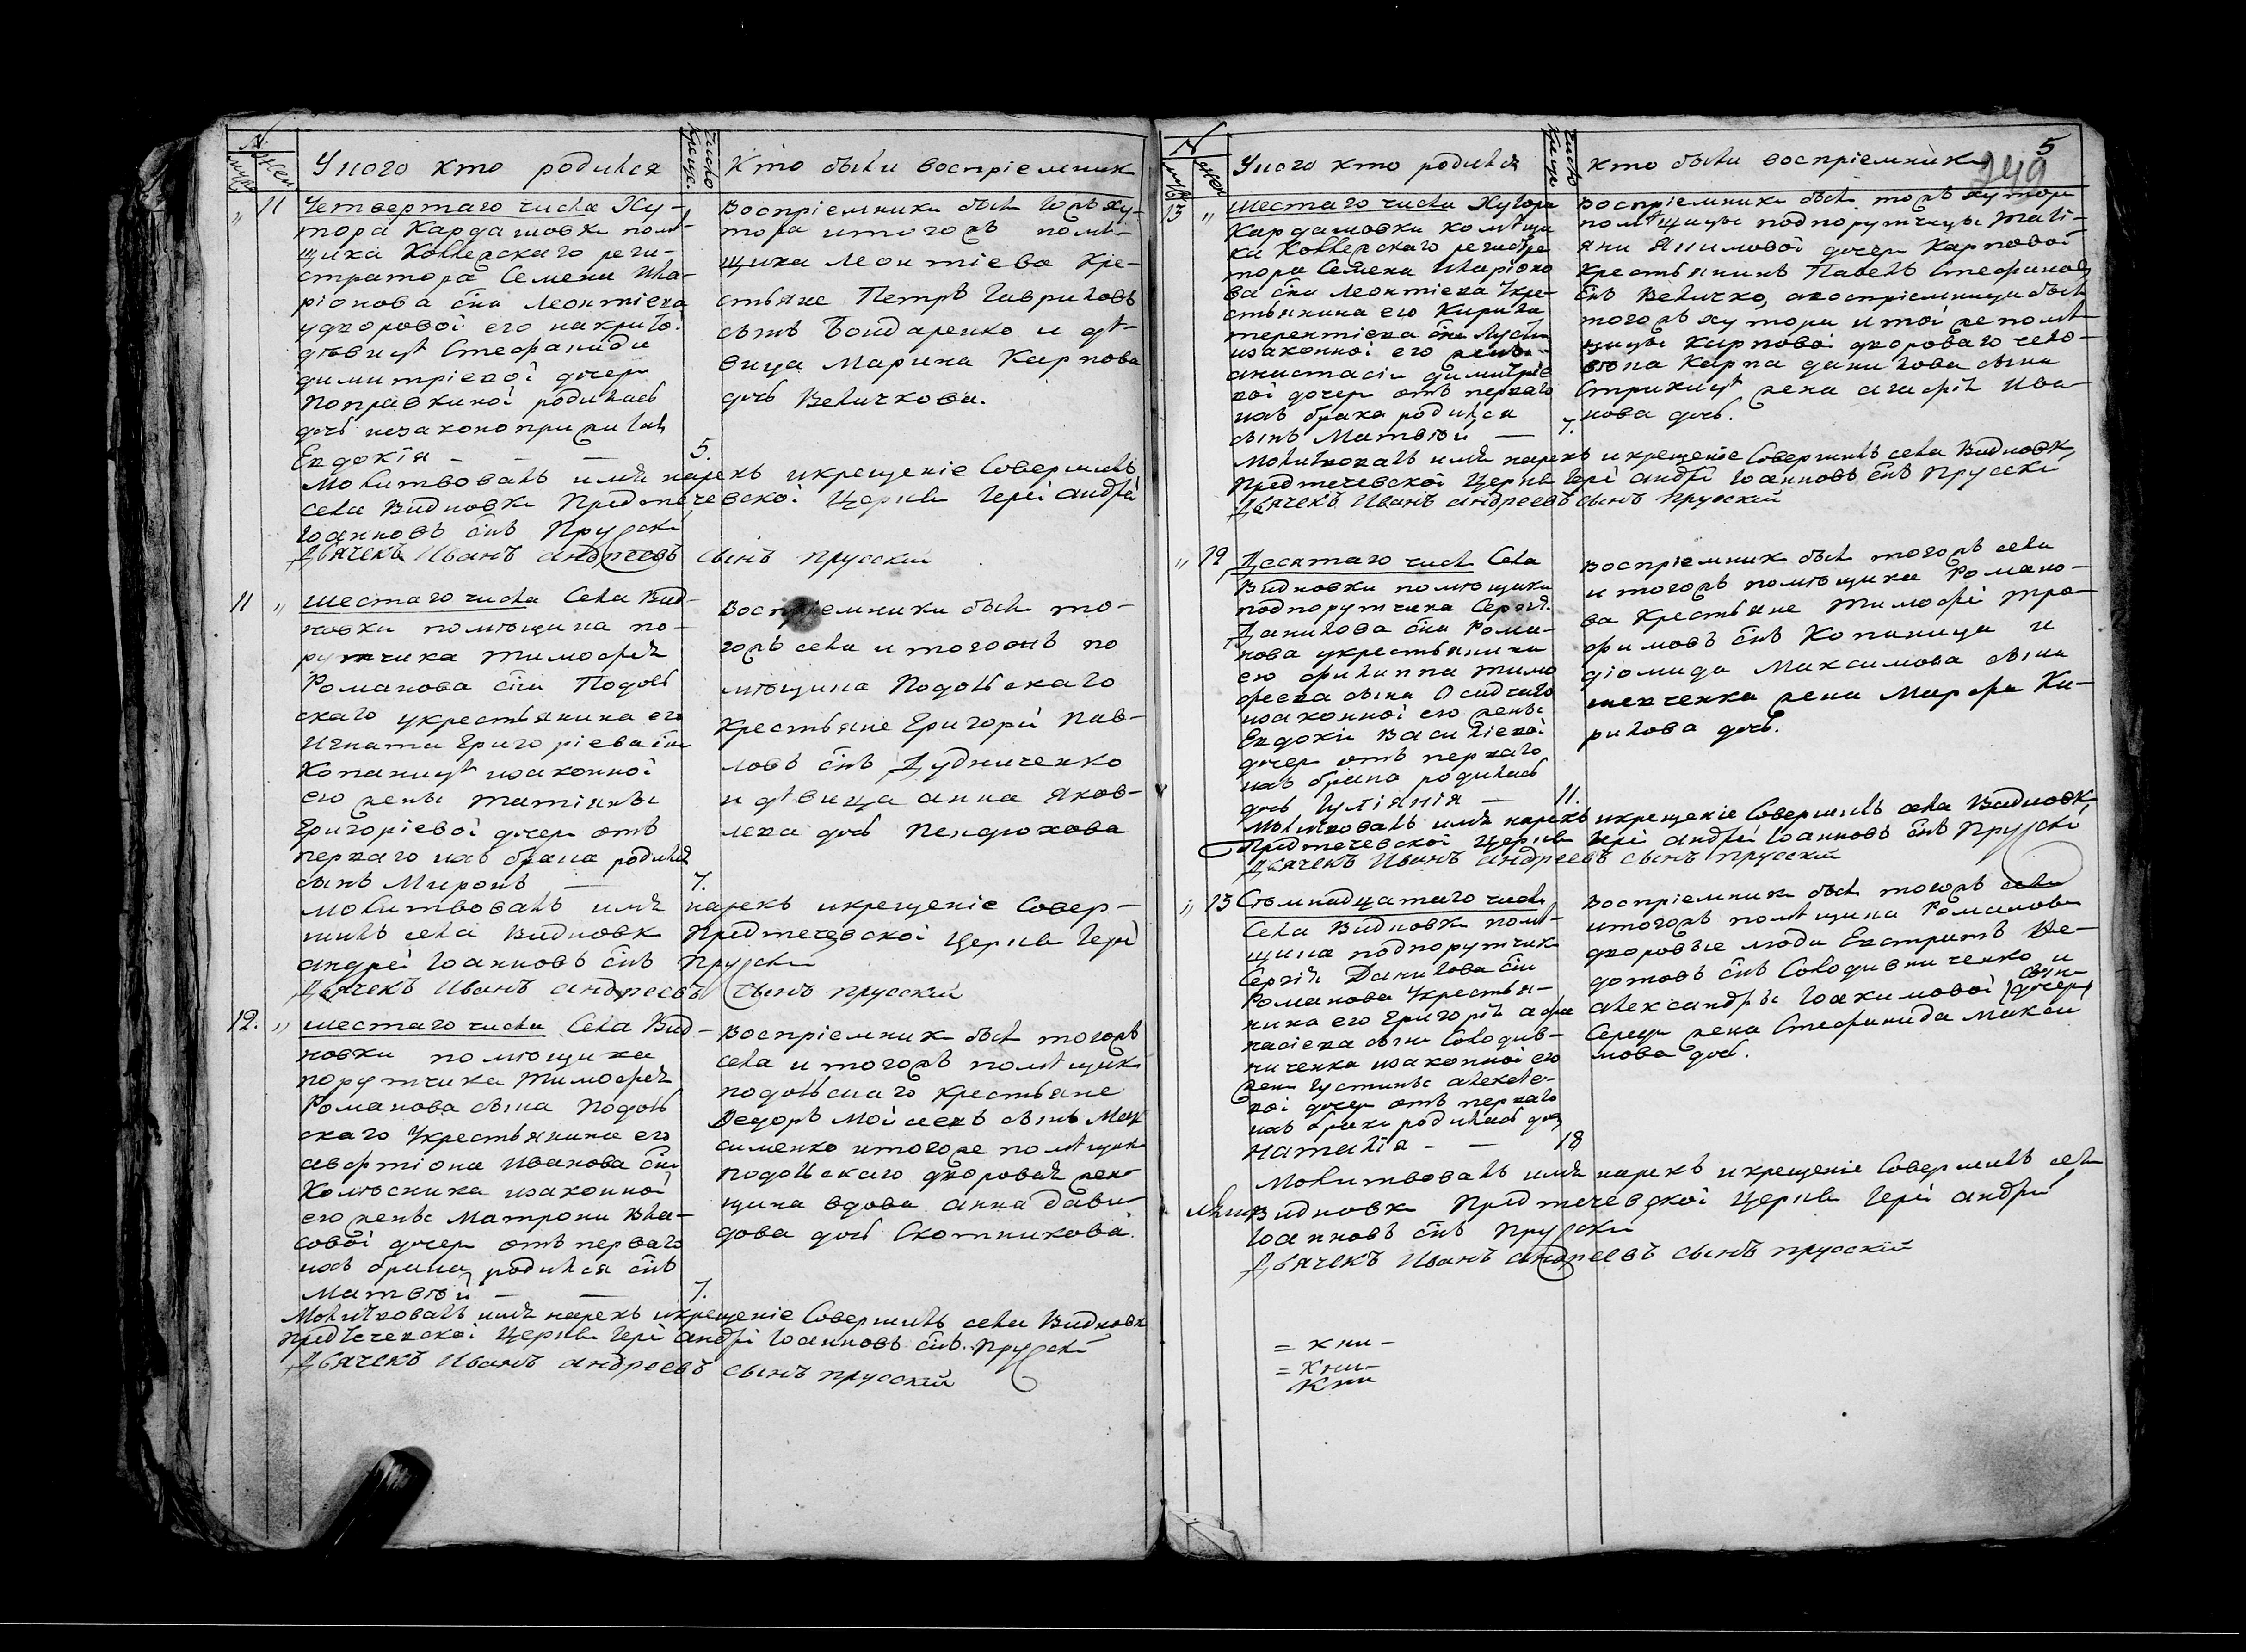 №
муж.
жен.
У кого кто родился
число
крещ.
Кто были воспріемник
" 11
Четвертаго числа Ху-
тора Кардашовки помѣ-
щика Коллезскаго реги-
стратора Семена Ила-
ріонова сна Леонтиева
удворовоі его накрито.
дѣвицѣ Стефаниди
димитріевоі дочери
Поправкиноі родилась
дочь незаконоприжитая
Евдокія — — — 5.
Воспріемники были тогожъ ху-
тора итогожъ помѣ-
щика Леонтіева Кре-
стьяне Петръ Гавриловъ
сынъ Бондаренко и дѣ-
вица Марина Карпова
дочь Величкова.
Молитвовалъ имя нарекъ икрещеніе Совершилъ
села Видновки Предтечевскоі Церкви Іереі Андрѣй
Іоанновъ снъ Прускі
Дьячекъ Иванъ Андреевъ сынъ Прусскій
11 "
Шестаго числа Села Вид-
новки помѣщика по-
рутчика Тимофея
Романова сна Подоль
скаго укрестьянина его
Игната Григоріева сна
Копаницѣ изаконноі
его жены Татіяны
Григоріевоі дочери отъ
перваго ихъ брака родился
сынъ Миронъ — 7.
Воспріемники были то-
гожъ села и тогожъ по
мѣщика Подольскаго
Крестьяне Григорій Пав-
ловъ снъ Дудниченко
и дѣвица Анна Яков-
лева дочь Пендюхова
Молитвовалъ имя нарекъ икрещеніе Совер-
шилъ села Видновк Предтечевскоі Церкви Іереі
Андреі Іоанновъ снъ Прускі
Дьячекъ Иванъ Андреевъ сынъ Прусскій
12. "
Шестаго числа Села Вид-
новки помѣщика
порутчика Тимофея
Романова сына Подоль
скаго Укрестьянина его
Авфтіона Иванова сна
Колѣсника изаконноі
его жены Матроны Вла-
совоі дочери отъ перваго
ихъ брака родился снъ
Матвѣй — — 7.
Воспріемник были тогожъ
села и тогожъ помѣщик
подольскаго Крестьяне
Ѳедоръ Моісеевъ сынъ Мак
сименко итогоже помѣщик
Подольскаго дворовая жен
щина вдова Анна Дави-
дова дочь Скотникова.
Молитвовалъ имя нарекъ икрещеніе Совершилъ села Видновк
Предтечевскоі Церкви Іереі Андрѣі Іоанновъ снъ Прускі
Дьячекъ Иванъ Андреевъ сынъ Прусскій
№
муж
жен
У кого кто родился
число
крещ
Кто были воспріемники
5
249
13 "
Шестаго числа Хутора
Кардашовки помѣщи
ка Коллезскаго регистра
тора Семена Иларіоно
ва сна Леонтиева Укре-
стьянина его Кирила
терентіева сна
изаконноі его жены
Анистасіи димитріе
воі дочери отъ перваго
ихъ брака родился
сынъ Матвѣй — 7.
Воспріемники были тогожъ хутора
помѣщицы подпорутчицы Тати-
яни Якимовоі дочери Карповоі
Крестьянинъ Павелъ Стефановъ
снъ Величко, авоспріемница была
тогожъ хутора и тоі же помѣ-
щицы Карповоі двороваго чело-
вѣка Карпа данилова сына
Стрижицѣ жена Агафія Ива-
нова дочь.
Молитвовалъ имя нарекъ и крещеніе Совершилъ села Видновк
Предтечевскоі Церкви Іереі Андрѣі Іоанновъ снъ Прускі
Дьячекъ Иванъ Андреевъ сынъ Прусскій
" 12
Десятаго числа Села
Видновки помѣщика
подпорутчика Сергія
Данилова сна Рома-
нова укрестьянина
его филиппа тимо
феева сына Осадчаго
изаконноі его жены
Евдокіи Василіевоі
дочери отъ перваго
ихъ брака родилась
дочь Іуліянія — 11.
Воспріемник были тогожъ села
и тогожъ помѣщика Романо-
ва Крестьяне Тимофеі Тро-
фимовъ снъ Копаница и
діомида Максимова сына
шевченка жена Марфа Ки-
рилова дочь.
Молитвовалъ имя нарекъ икрещеніе Совершилъ села Видновк
Предтечевскоі Церкви Іереі Андрѣі Іоанновъ снъ Прускі
Дьячекъ Иванъ Андреевъ сынъ Прусскій
" 13
Семнадцатаго числа
Села Видновки помѣ-
щика подпорутчик
Сергія Данилова сна
Романова Укрестья-
нина его Григорія Афа
насіева сына Солодив-
ниченка изаконноі его
жены Іустины Алексѣе-
воі дочери отъ перваго
ихъ брака родилась дочь
Наталія — — 18
Воспріемник были тогожъ села
итогожъ помѣщика Романова
дворовые люди Евстратъ Ѳе-
дотовъ снъ Солодивниченко и
Александры Іоакимовоі дочери
Середы жена Стефанида Макси
мова дочь.
Молитвовалъ имя нарекъ и крещеніе Совершилъ села
Видновк Предтечевскоі Церкви Іереі Андрѣй
Іоанновъ снъ Прускі
Дьячекъ Иванъ Андреевъ сынъ Прусскій
= Кни-
= Кни-
Кни